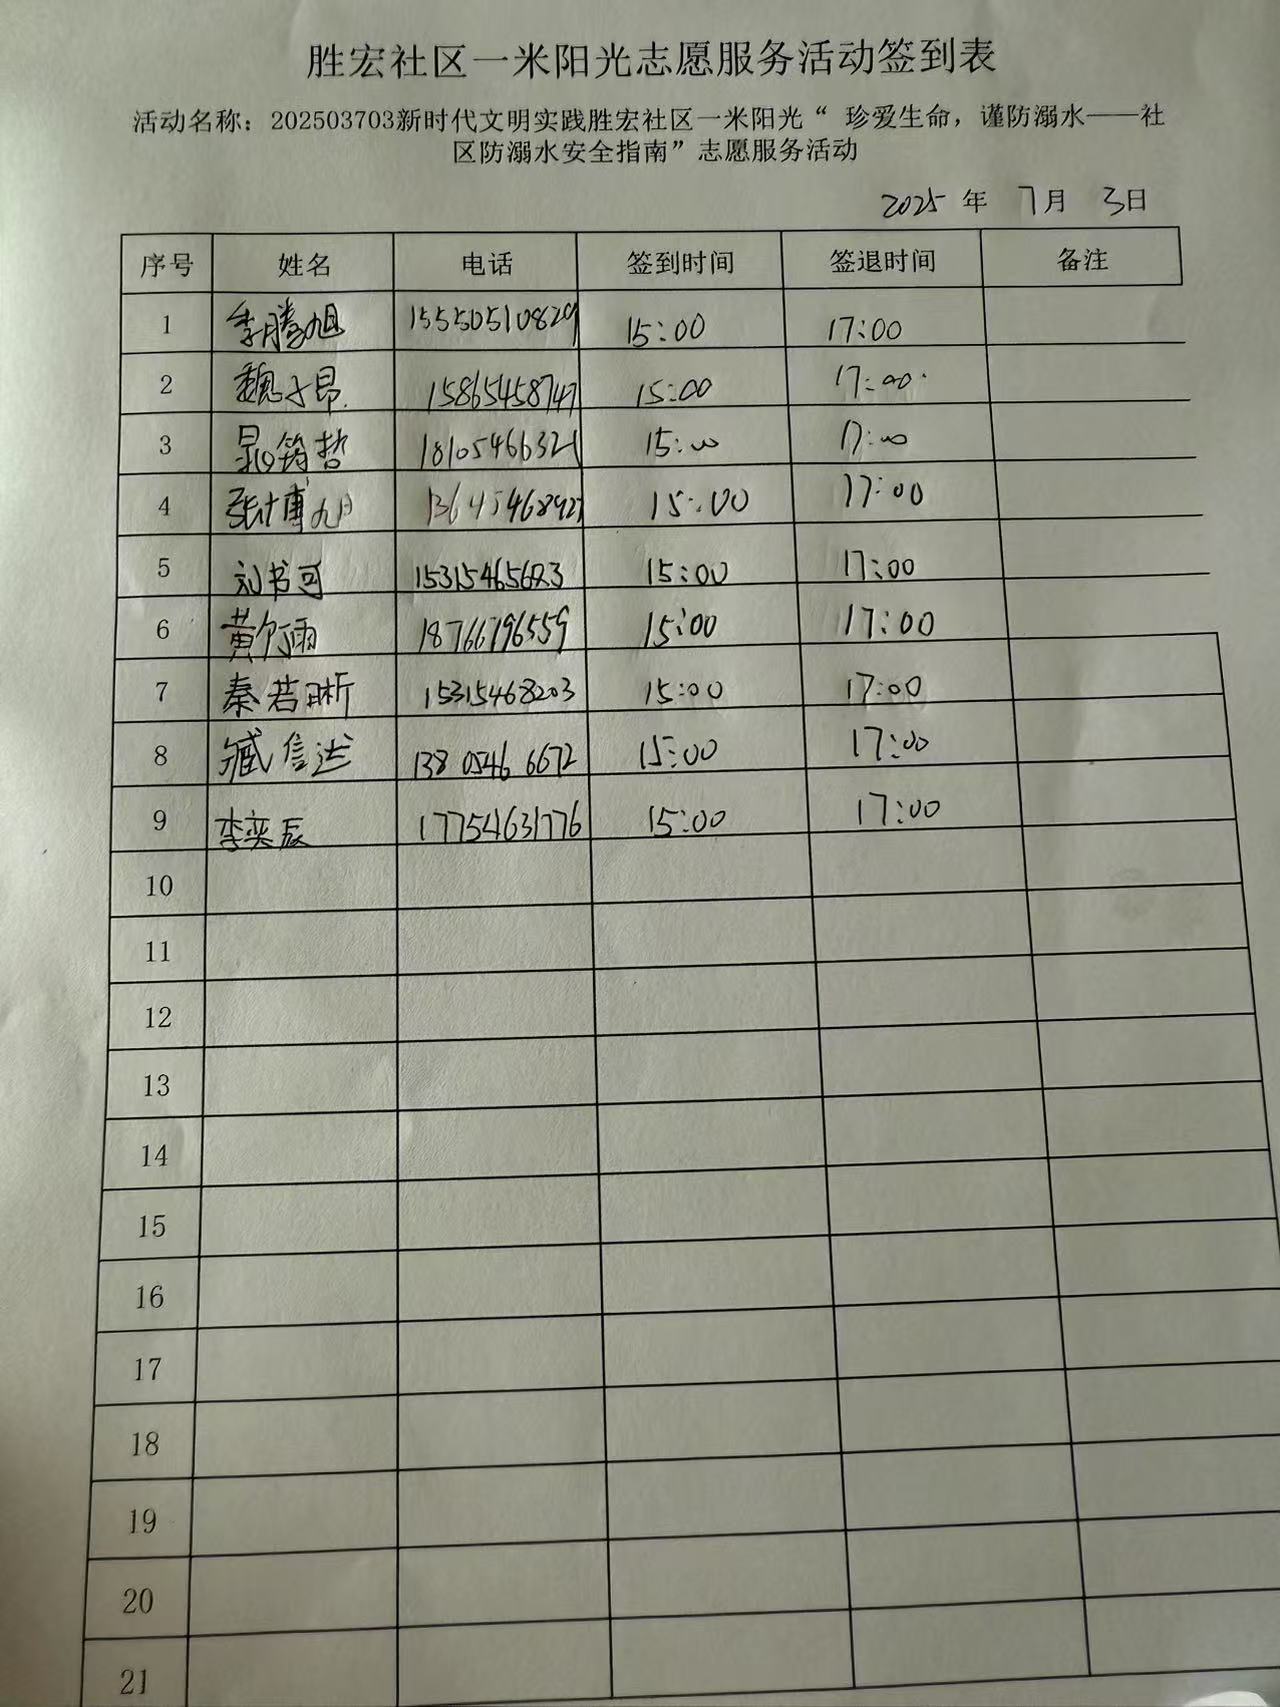 胜宏社区一米阳光志愿服务活动签到表
活动名称：202503703新时代文明实践胜宏社区一米阳光“ 珍爱生命，谨防溺水——社
区防溺水安全指南”志愿服务活动
2025 年 7月 3日
序号 姓名 电话 签到时间 签退时间 备注
1 李腾旭 15550510829 15:00 17:00
2 魏子昂 15865458747 15:00 17:00
3 晁筠哲 18105466321 15:00 17:00
4 张博旭 15:00 17:00
5 刘书可 15:00 17:00
6 黄 雨 18766796559 15:00 17:00
7 秦若晰 15315468203 15:00 17:00
8 臧信达 138 0546 6672 15:00 17:00
9 李奕辰 17754631776 15:00 17:00
10
11
12
13
14
15
16
17
18
19
20
21